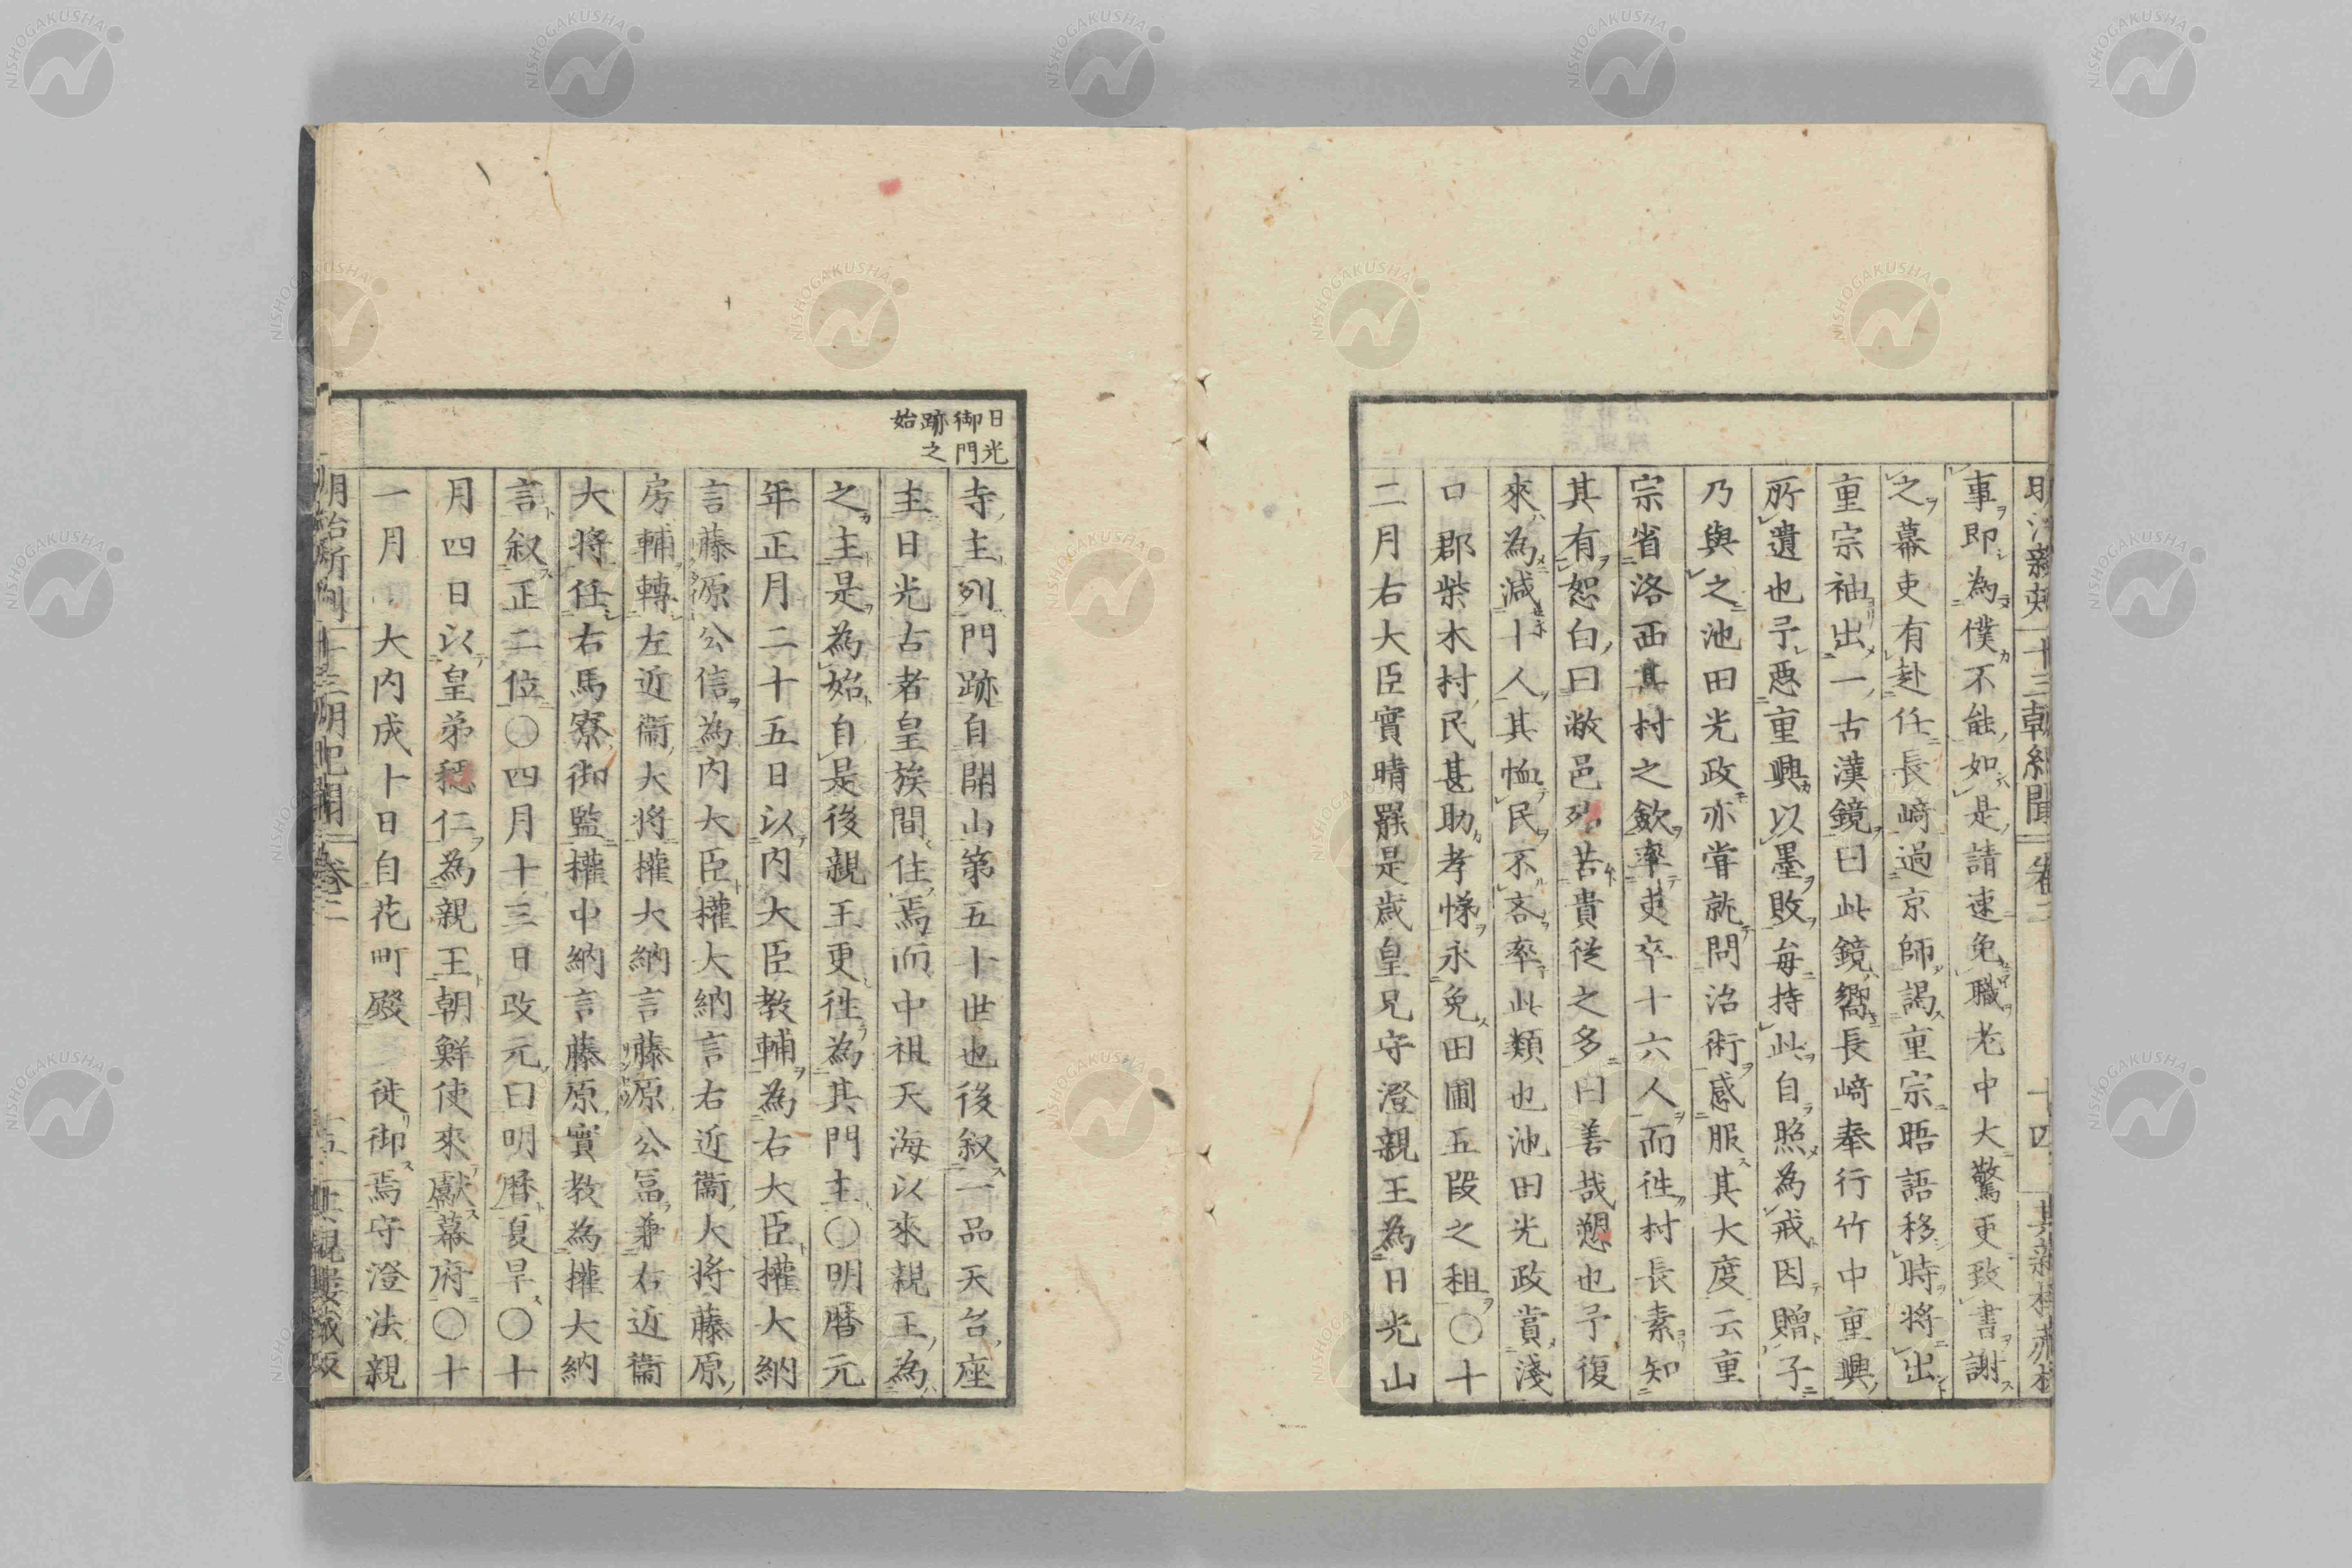 事即為僕不能如是請速免職老中大驚更致書謝
之幕吏有赴任長﨑過京師謁重宗晤語移時將出
重宗袖出一古漢鏡曰此鏡嚮長﨑奉行竹中重興
所遺也予惡重興以墨敗每持此自照為戒因贈子
乃與之池田光政亦嘗就問治術感服其大度云重
宗省洛西其村之欽率吏卒十六人而徃村長素知
其有恕白曰敝邑苦貴從之多曰善哉愬也予復
來為減十人其恤民不吝率此類也池田光政賞淺
口郡柴木村民甚助孝悌永免田圃五段之租〇十
二月右大臣實晴罷是歳皇兄守澄親王為日光山
日光
御門
跡之
始
寺主列門跡自開山第五十世也後叙一品天台座
主日光古者皇族間住焉而中祖天海以來親王為
之主是為始自是後親王更徃為其門主〇明曆元
年正月二十五日以内大臣教輔為右大臣權大納
言藤源公信為内大臣權大納言右近衞大将藤原
房輔轉左近衞大将權大納言藤源公冨兼右近衞
大将任右馬寮御監權中納言藤原實教為權大納
言叙正二位〇四月十三日改元曰明曆夏旱〇十
月四日以皇弟穩仁為親王朝鮮使來獻幕府〇十
一月大内成十日自花町殿徙御焉守澄法親
明治新刻 十三朝紀聞 卷二 十五 共親樓蔵版